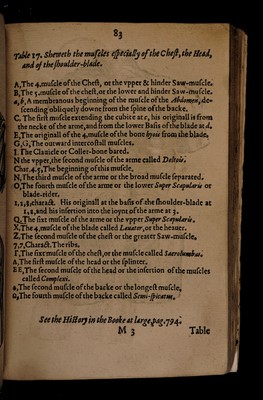 83
Table 17. Sheweth the muscles especially of the Chest, the Head,
and of the shoulder-blade.
A, The 4. muscle of the Chest, or the vpper & hinder Saw-muscle.
B, The 5. muscle of the chest, or the lower and hinder Saw-muscle.
a, b, A membranous beginning of the muscle of the Abdomen, de-
scending obliquely downe from the spine of the backe.
C. The first muscle extending the cubite at c, his originall is from
the necke of arme, and from the lower Basis of the blade at d.
E, The originall of the 4. muscle of the bone hyois from the blade.
G, G, The outward intercostall muscles.
I The Clauicle or Coller-bone bared.
N the vpper, the second muscle of the arme called Deltois.
Char. 4, 5, The beginning of this muscle,
N, The third muscle of the arme or the broad muscle separated.
O, The fourth muscle of the arme or the lower Super Scapularis or
blade-rider.
1, 2, 3, charact. His originall at the basis of the shoulder-blade at
1, 2, and his insertion into the ioynt of the arme at 3.
Q, The fixt muscle of the arme or the vpper Super Scapularis.
X, The 4. muscle of the blade called Leuator, or the heauer.
Z, The second muscle of the chest or the greater Saw-muscle.
7, 7, Charact. The ribs.
Γ, The sixt muscle of the chest, or the muscle called Sacrolumbus.
Λ, The first muscle of the head or the splinter.
The second muscle of the head or the insertion of the muscles
called Complexi.
The second muscle of the backe or the longest muscle,
Ω, The fourth muscle of the backe called Semi-spicatus.
See the History in the Booke at large, pag. 794.
M 3 Table